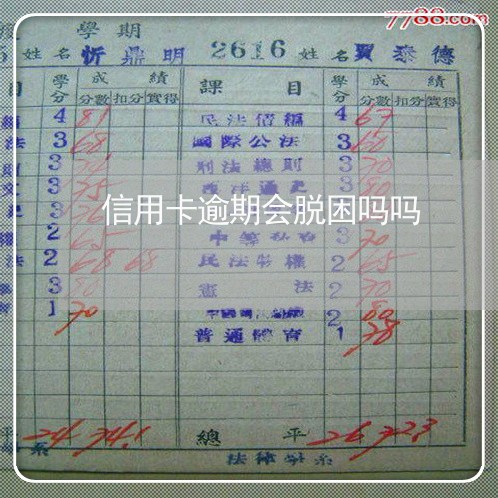 7788.com
學期
姓名 忻鼎明 2616 姓名 賈泰德
目 學分 成績 課目 學分 成績
分數 扣分 實得 分數 扣分 實得
4 81 民法債編 4 67
法 3 68 國際公法 3 60
3 刑法總則 3 70
3 75 西洋通史 3 80
信用卡逾期会脱困吗吗
2 65 中等私有 3 70
法 2 68 68 民法物權 2 65
3 80 憲法 2 70
1 70 2 80
普通體育 1 78
平 24 74.1 總平 26 72.3
系 法律學系